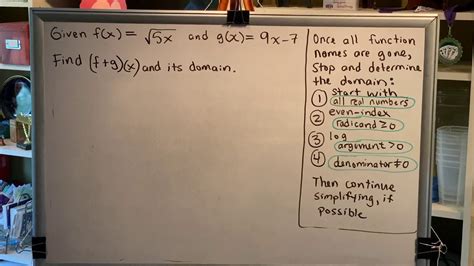 Given f(x) = √5x and g(x) = 9x-7
Find (f+g)(x) and its domain.
Once all function
names are gone,
stop and determine
the domain:
① start with
all real numbers
② even-index
radicand ≥ 0
③ log
argument > 0
④ denominator ≠ 0
Then continue
simplifying, if
possible